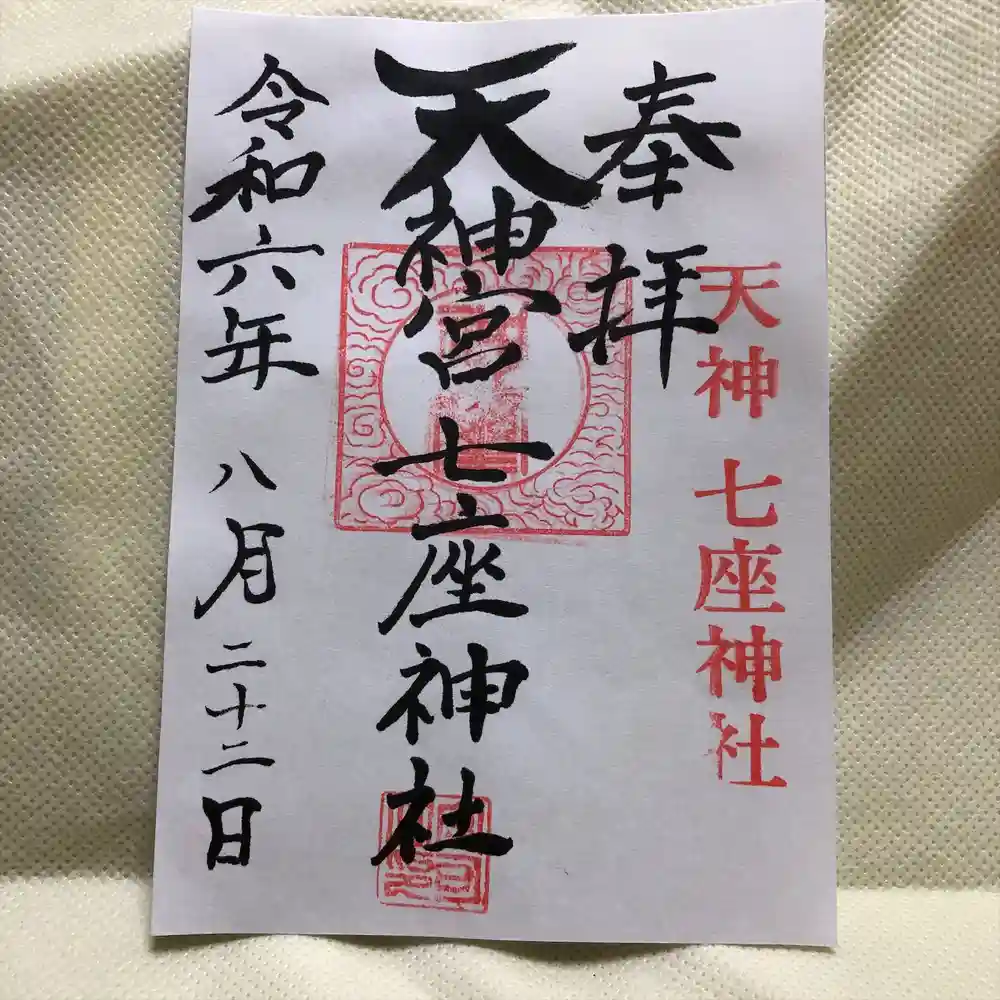 天神 七座神社
奉拝
天神宮 七座神社
令和六年 八月 二十二日